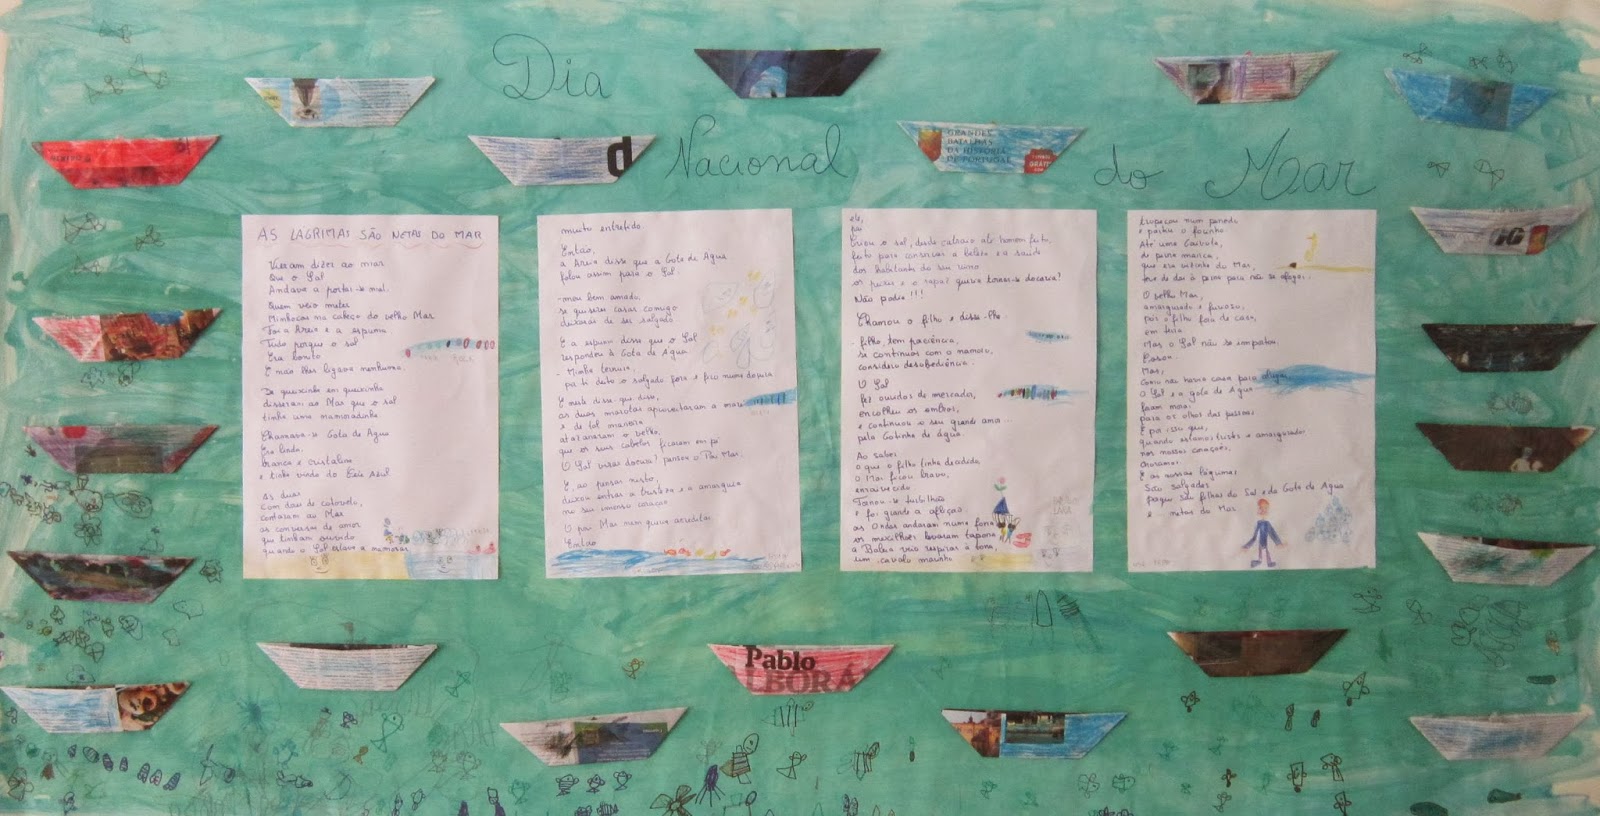 Dia
Nacional
do Mar
d
GRANDES
BATALHAS
DA HISTÓRIA
DE PORTUGAL
GRÁTIS
AS LAGRIMAS SÃO NETAS DO MAR
Vieram dizer ao mar
Que o Sal
Andava a portar-se mal.
Quem veio meter
Minhocas na cabeça do velho Mar
Foi a Areia e a espuma
Tudo porque o sal
Era bonito
E não lhes ligava nenhuma.
De queixinha em queixinha
disseram ao Mar que o sal
tinha uma namoradinha
Chamava-se Gota de Agua
Era linda,
branca e cristalina
e tinha vindo do Azul
As duas
Com dor de cotovelo,
contaram ao Mar
as conversas de amor
que tinham ouvido
quando o Sal estava a namorar
muito entretido
Então,
a Areia disse que a Gota de Agua
falou assim para o Sal:
- meu bem amado,
se quiseres casar comigo
deixarás de ser salgado
E a espuma disse que o Sal
respondeu à Gota de Agua
- Minha ternura,
por ti deito o salgado fora e fico numa doçura
E neste disse-que-disse,
as duas marotas apoquentaram a
e de tal maneira
atazanaram o velho,
que os seus cabelos ficaram em pé
O Sal virar doçura? pensou o Pai Mar.
E, ao pensar nisto,
deixou entrar a tristeza e a amargura
no seu imenso coração
O pai Mar nem queria acreditar
Então
ele,
pai
Criou o sal, desde catraio até homem feito,
feito para conservar a beleza e a saúde
dos habitantes do seu reino
os peixes e o rapaz queria tornar-se doçura?
Não podia!!!
Chamou o filho e disse-lhe:
- filho, tem paciência,
se continuas com o namoro,
considero desobediência.
O Sal
fez ouvidos de mercador,
encolheu os ombros,
e continuou o seu grande amor...
pela Gotinha de água.
Ao saber
o que o filho tinha decidido
o Mar ficou bravo,
enraivecido
Tornou-se turbilhão
e foi grande a aflição.
as Ondas andaram numa fona
os mexilhões levaram tapona
a Baleia veio respirar à tona,
um cavalo marinho
tropeçou num penedo
e partiu o focinho
Até uma Gaivota,
de perna marica,
que era vizinha do Mar,
teve de dar à perna para não se afogar...
O velho Mar,
amargurado e furioso,
pôs o filho fora de casa,
em terra
Mas o Sal não se importou.
Casou.
Mas,
como não havia casa para alugar,
O Sal e a gota de Agua
foram morar
para os olhos das pessoas
E por isso que,
quando estamos tristes e amargurados
nos nossos corações,
choramos.
E as nossas lágrimas
São salgadas
porque são filhas do Sal e da Gota de Agua
e... netas do Mar
Pablo
ALBORÁN